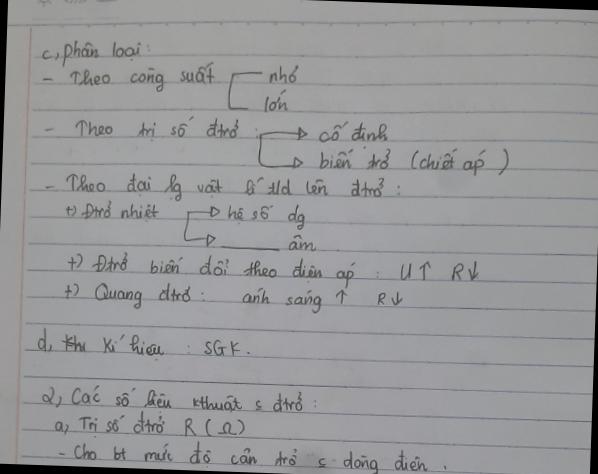 c, phân loại:
- Theo công suất nhỏ
lớn
- Theo trị số đtrở: cố định
biến trở (chiết áp)
- Theo đại lg vật lí t/d lên đtrở:
+) Đtrở nhiệt hệ số dg
_____ âm
+) Đtrở biến đổi theo điện áp: U↑ R↓
+) Quang đtrở: ánh sáng ↑ R↓
d, Kí hiệu: SGK.
2, Các số liệu kthuật c đtrở:
a, Trị số đtrở R (Ω)
- Cho bt mức độ cản trở c dòng điện.